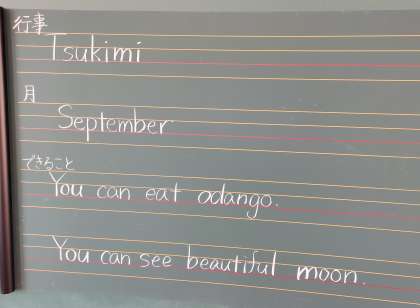 行事
Tsukimi
月
September
できること
You can eat odango.
You can see beautiful moon.